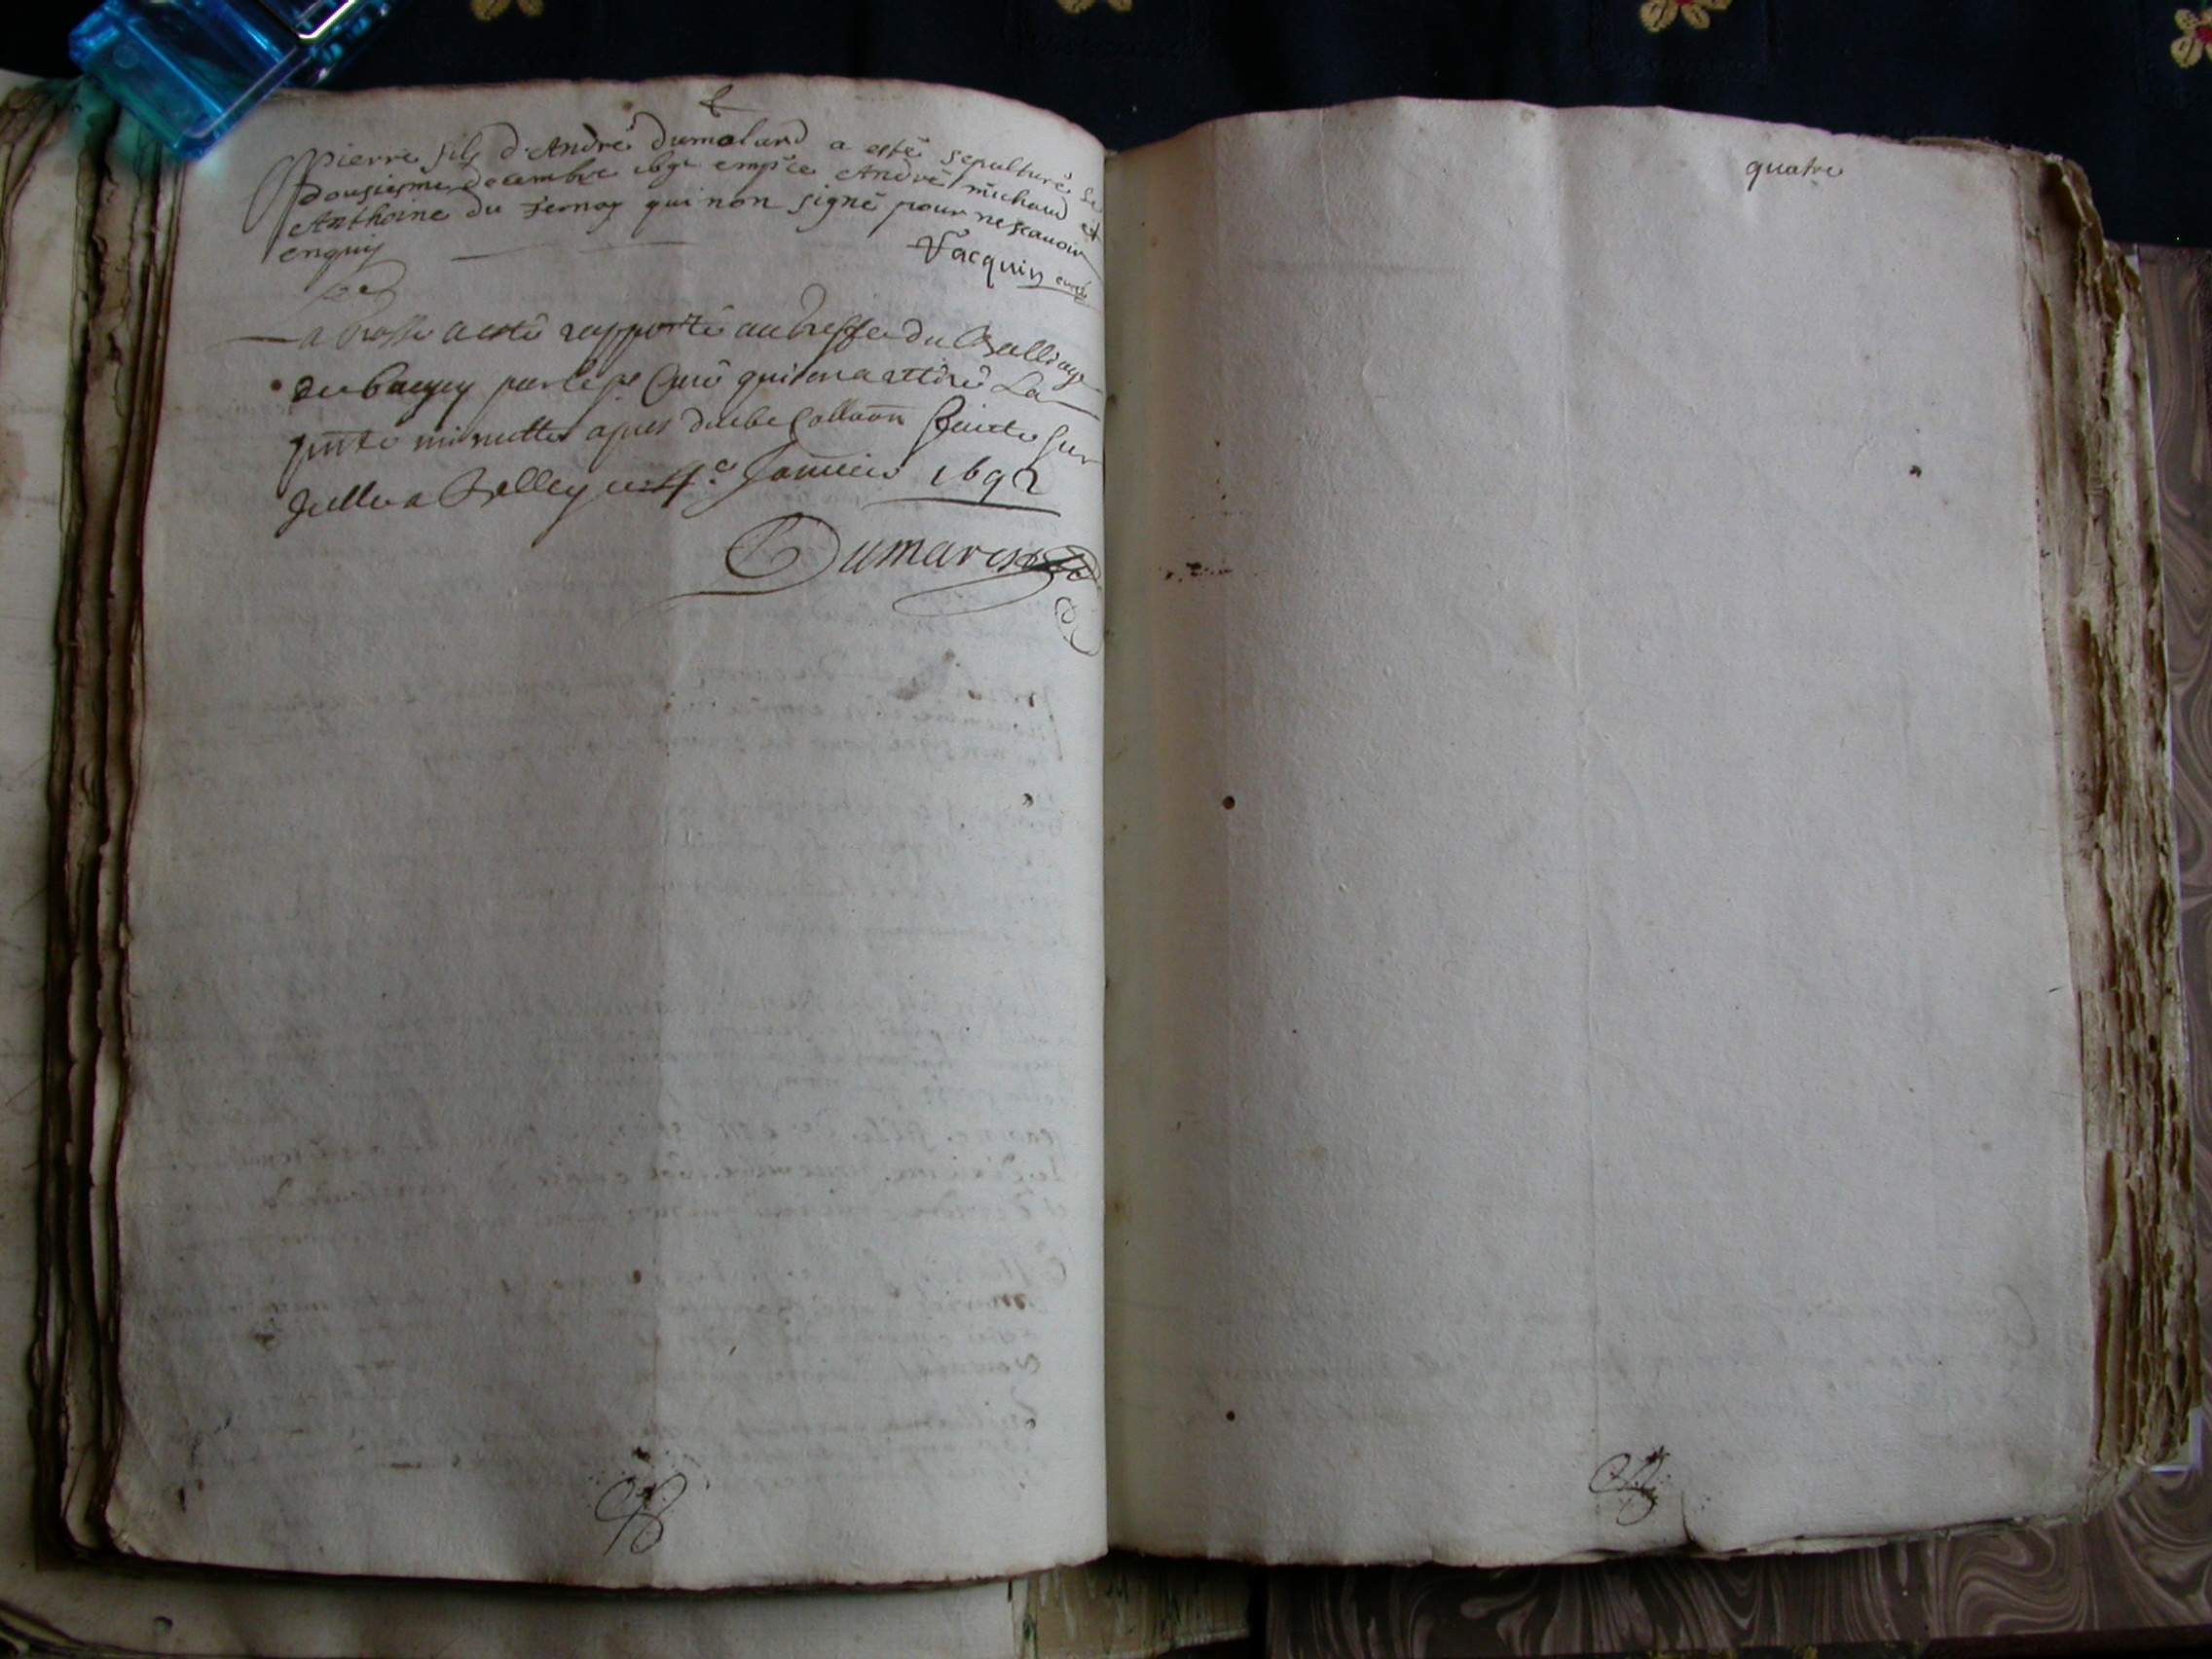 Pierre fils d'André Dumolard a esté sepulturé Le
dousiesme decembre 1691 empñce André michaud et
Anthoine du fernoy qui non signé pour ne scauoir
enquis
Jacquin curé
La Grosse a esté rapporté au Greffe du Balliage
du bugey par le sr Curé qui en a attiré La
pñte minutte apres deube Collaõn faicte sur
Jcelle a Belley ce 4e Januier 1692
Dumarest
quatre